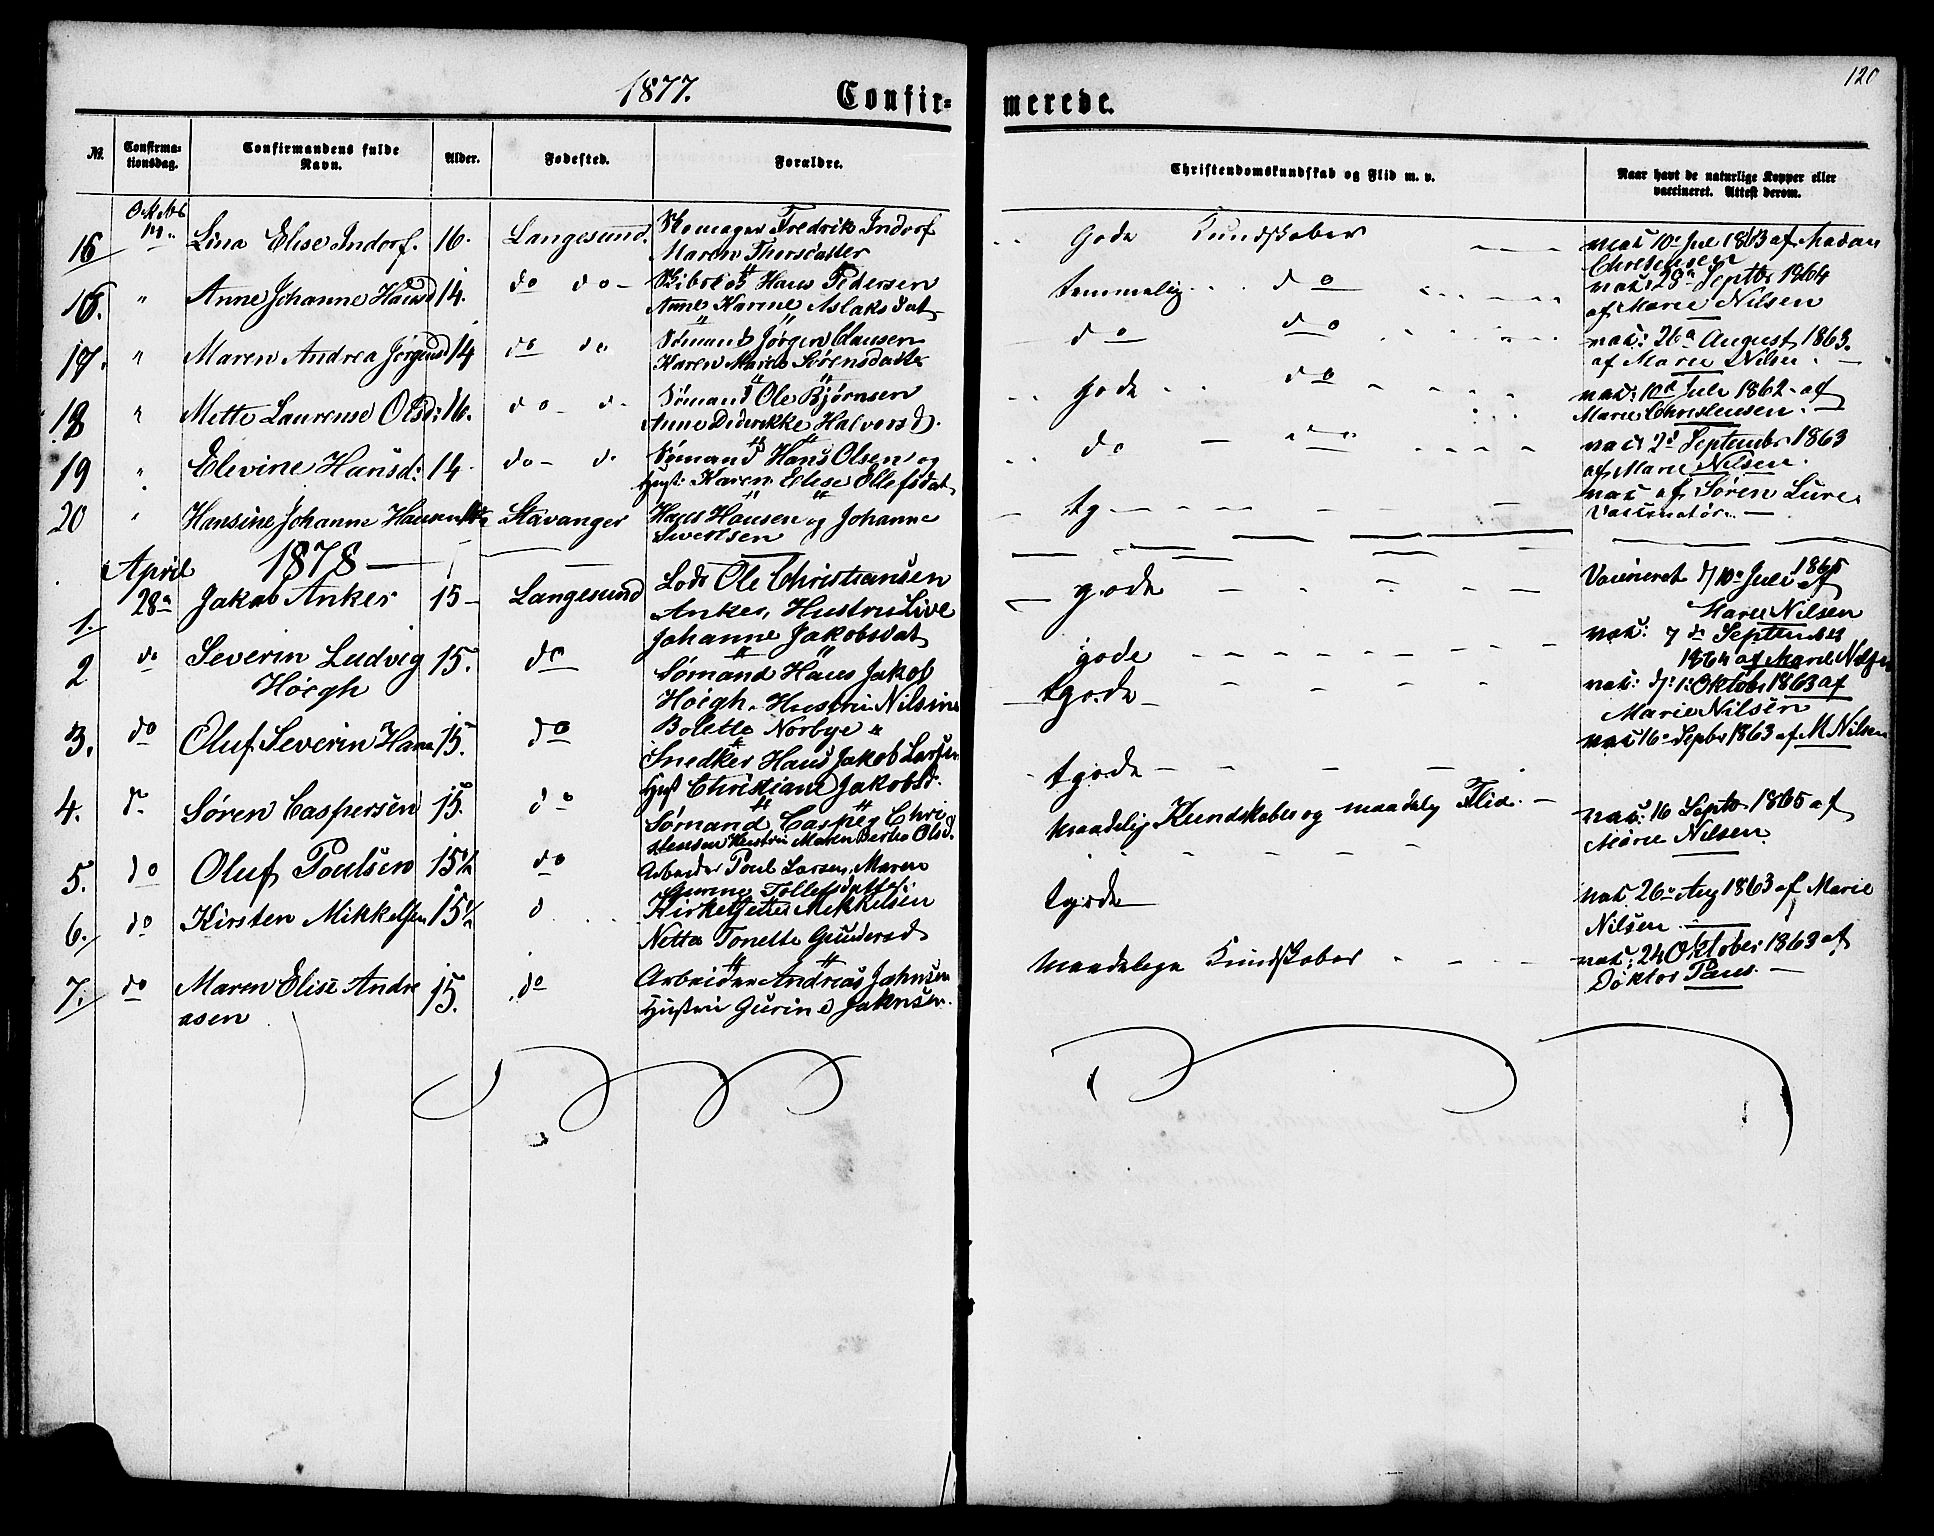 120
1877. Confir= merede.
No. Confirma=tionsdag. Confirmandens fulde Navn. Alder. Fødested. Forældre. Christendomskundskab og Flid m. v. Naar havt de naturlige Kopper eller vaccineret. Attest derom.
15 Lina Elise Indorf. 16. Langesund. Skomager Fredrik Indorf Gode Kundskaber vac: 10 Jul 1863 af Madam
Maren Thorsdatter Christensen
16. " Anne Johanne Hansd 14. do do Hans Pedersen temmelig do vac: 29 Septbr 1864
Anne Karine Aslaksdat af Marie Nilsen
17. " Maren Andrea Jørgensd 14 do do Sömand Jörgen Clausen do do vac: 26 August 1863.
Karen Maria Sørensdatter af Marie Nilsen
18 " Mette Laurense Olsd: 16. do do Sømand Ole Bjørnsen gode do vac: 10d Juli 1862 af
Anne Dederikke Halvorsd. Marie Christensen.
19 " Elevine Hansd: 14. do do Sømand Hans Olsen og do do vac 2d Septembr 1863
Hust: Karen Elise Ellefsdat af Marie Nilsen.
20 " Hansine Johanne Hansen Stavanger Hans Hansen og Johanne tg vac af Søren Lure
Sivertsen Vaccinatör.
1878
April
1. 28 Jakob Anker 15 Langesund Lods Ole Christiansen gode Vaccineret d 10 Juli 1865 af
Anker, Hustru Live Marie Nilsen
Johanne Jakobsdat
2 do Severin Ludvig 15. do Sømand Hans Jakob gode vac: 7 de September
Höegh Höegh. Hustru Nilsine 1864 af Marie Nilsen
Bolette Norbye tgode vac: d: 1: Oktobr 1863 af
Marie Nilsen
3. do Oluf Severin Hans 15. do Snedker Hans Jakob Larsen vac 16 Septbr 1863 af M Nilsen
Hust Christiane Jakobsd. tgode
4. do Søren Caspersen 15. do Sømand Casper Chri maadelig Kundskaber og maadelig Flid. vac: 16 Septbr 1865 af
stensen Hustru Maren Berthe Olsd. Marie Nilsen
5. do Oluf Poulsen 15½ do Arbeider Poul Larsen, Maren
Gurine Tollefsdatter
6. do Kirsten Mikkelsen 15½ d Mikkelsen tgode vac 26 Aug 1863 af Marie
Netta Tonette Gundersd Nilsen
7. do Maren Elise Andre 15. do Arbeider Andreas Jahnsen Maadelige Kundskaber vac: 24 Oktober 1863 af
asen Hustru Gurine Jahnsen. Doktor Paus.